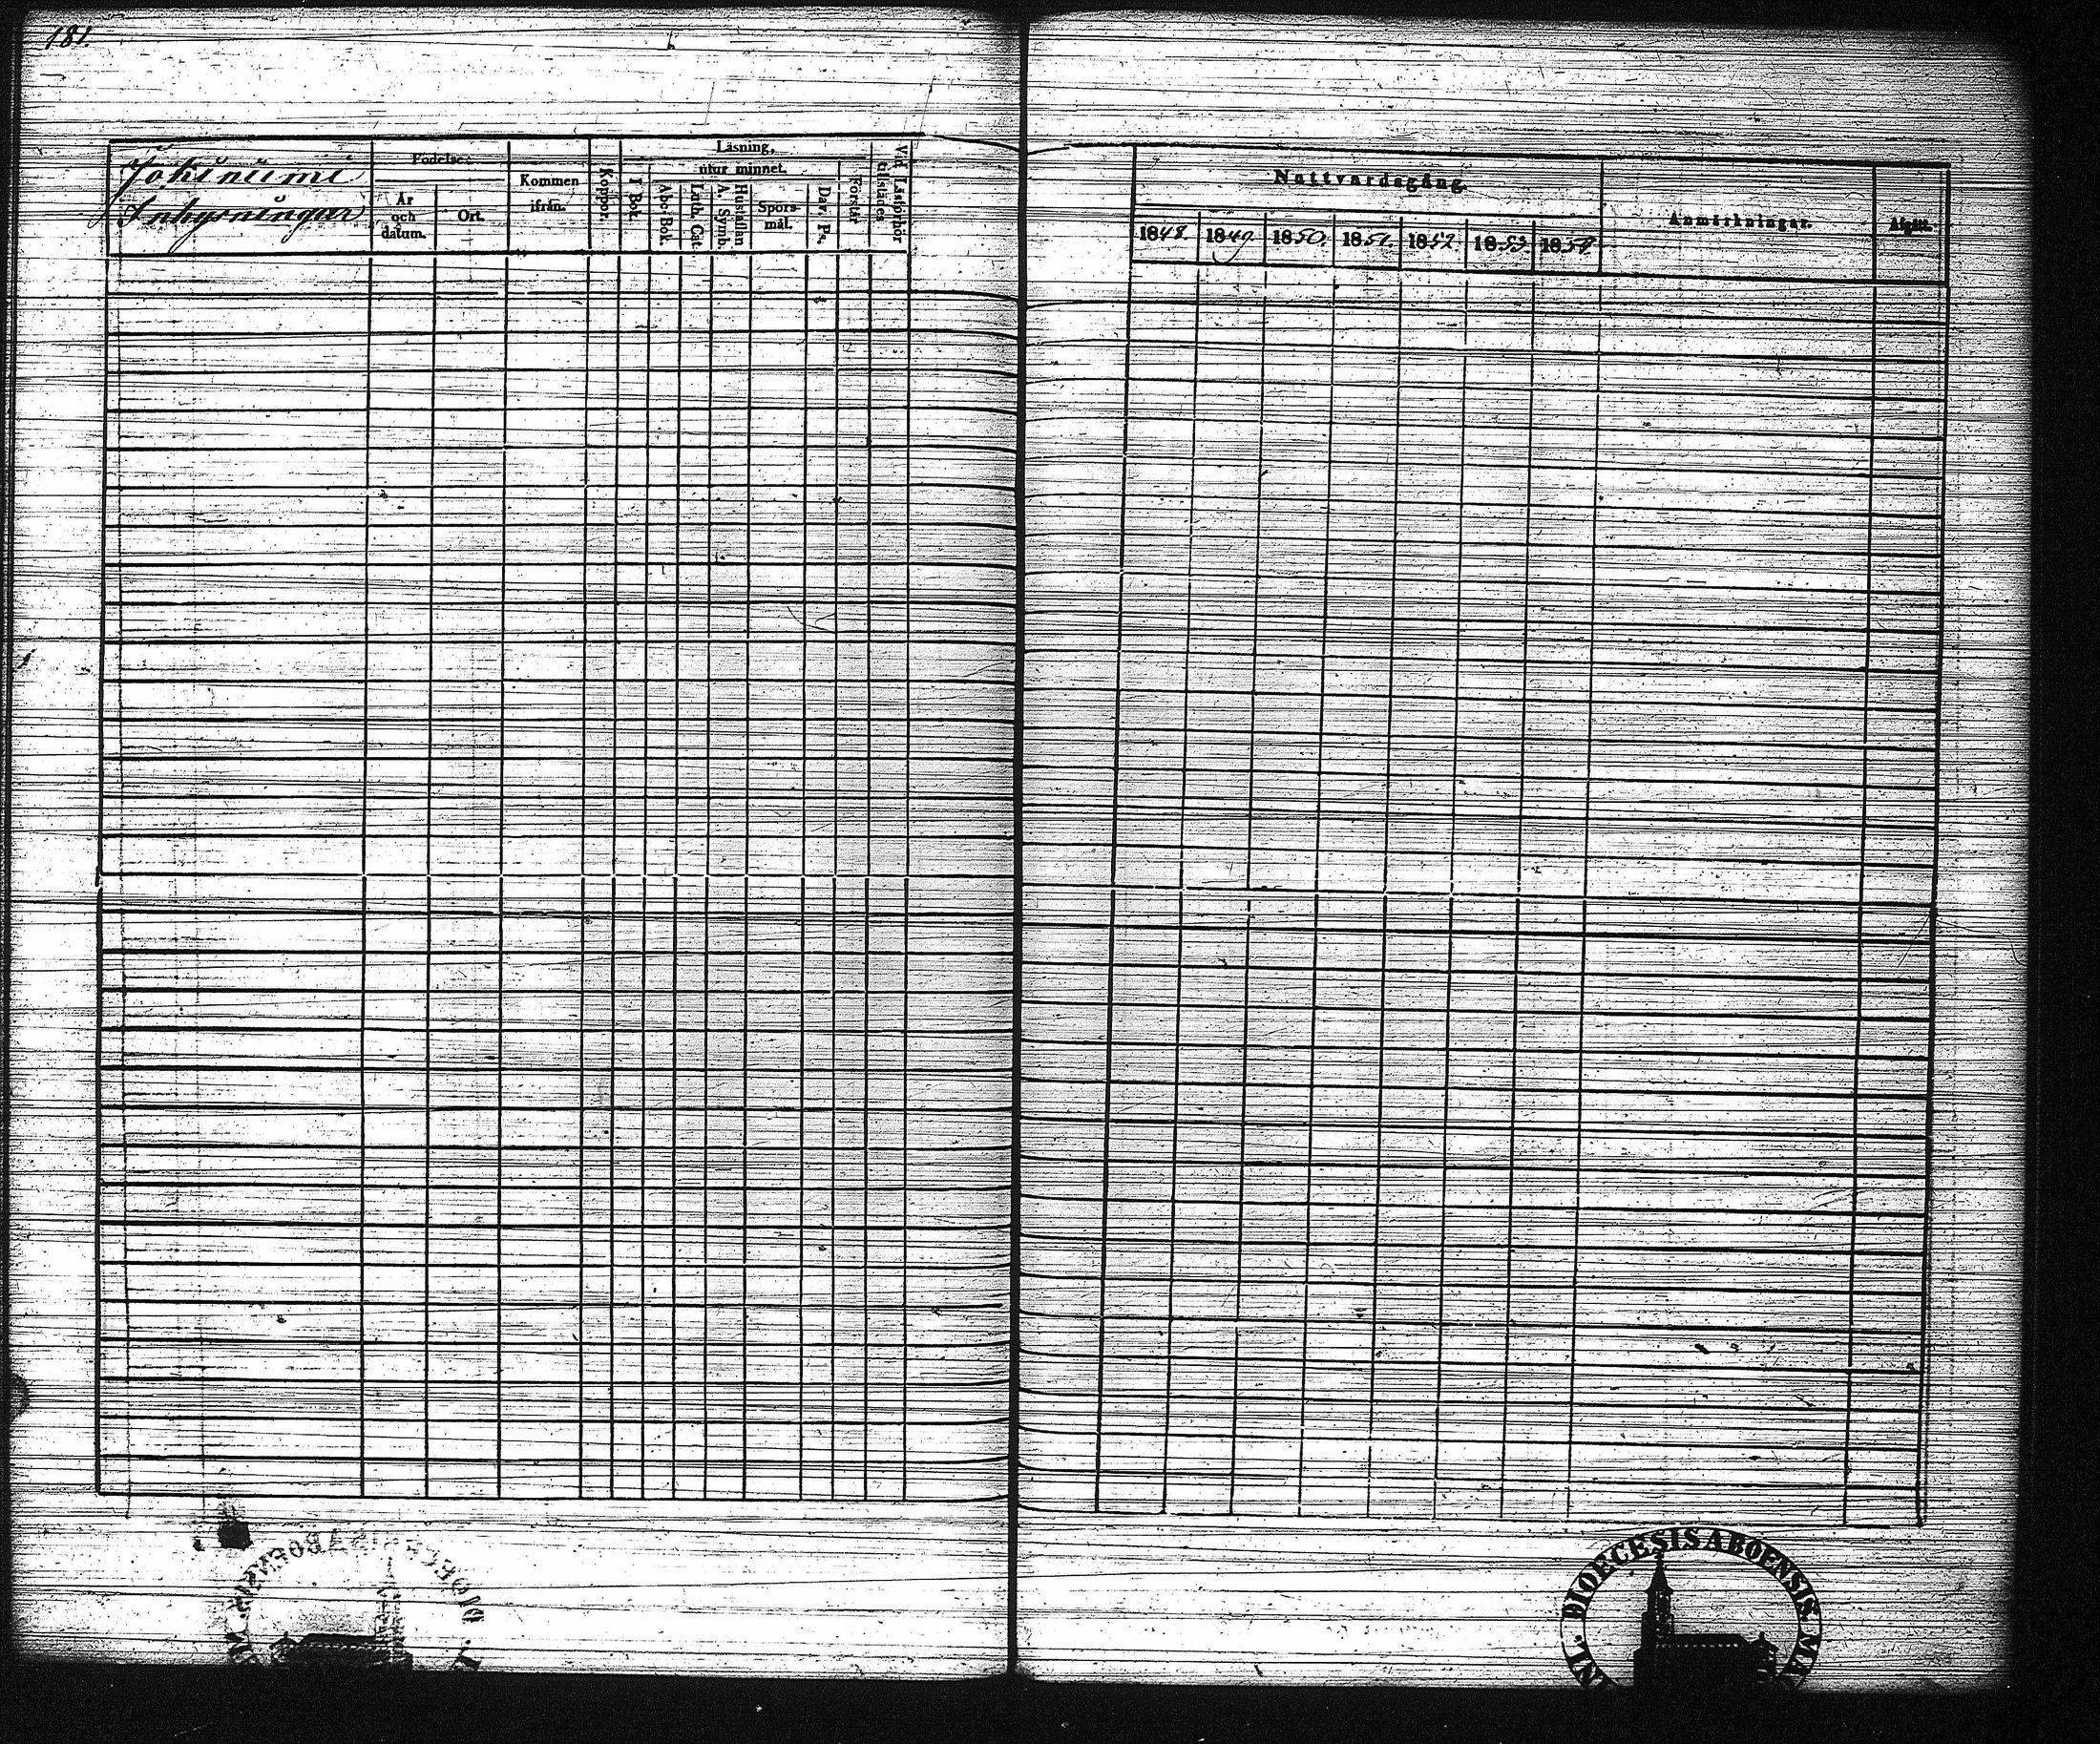 181.
Jokiniemi
Inhysningar
Födelse-
År
och
datum.
Ort.
Kommen
ifrån.
Koppor.
Läsning,
utur minnet.
I Bok.
Abc-Bok.
Luth. Cat.
Hustaflan
A. Symb.
Spörs-
mål.
Dav. Ps.
Förstår
Vid Läsförhör
tillstädes
Nattvardsgång.
1848. 1849. 1850. 1851. 1852. 1853. 1854.
Anmärkningar.
Afgått.
DIOECESIS ABOENSIS.